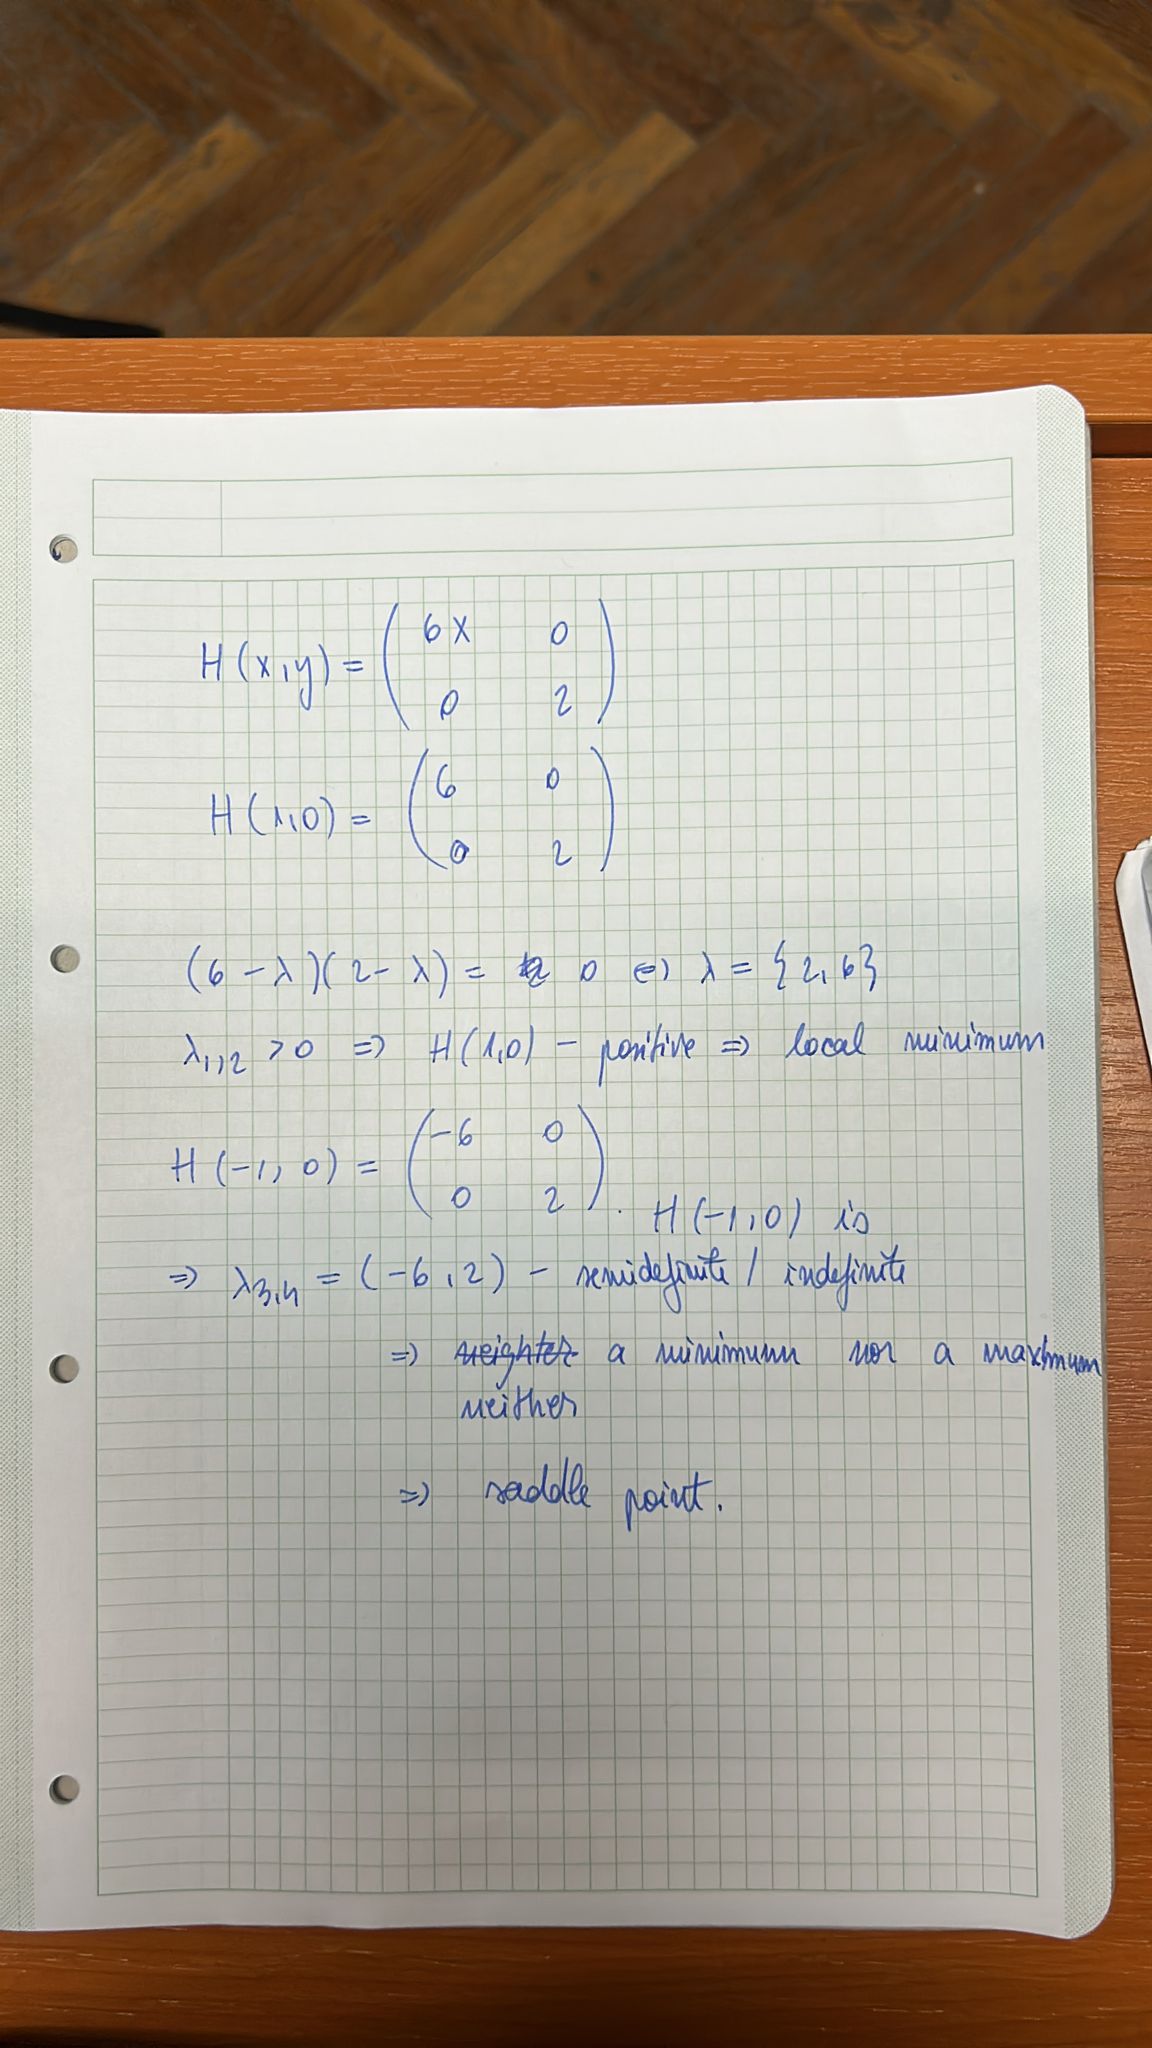 H(x,y) = ( 6x 0
0 2 )
H(1,0) = ( 6 0
0 2 )
(6 - λ)(2 - λ) = 0 ⇔ λ = {2, 6}
λ1,2 > 0 ⇒ H(1,0) - positive ⇒ local minimum
H(-1, 0) = ( -6 0
0 2 ). H(-1,0) is
⇒ λ3,4 = (-6, 2) - semidefinite / indefinite
⇒ neighter a minimum nor a maximum
neither
⇒ saddle point.